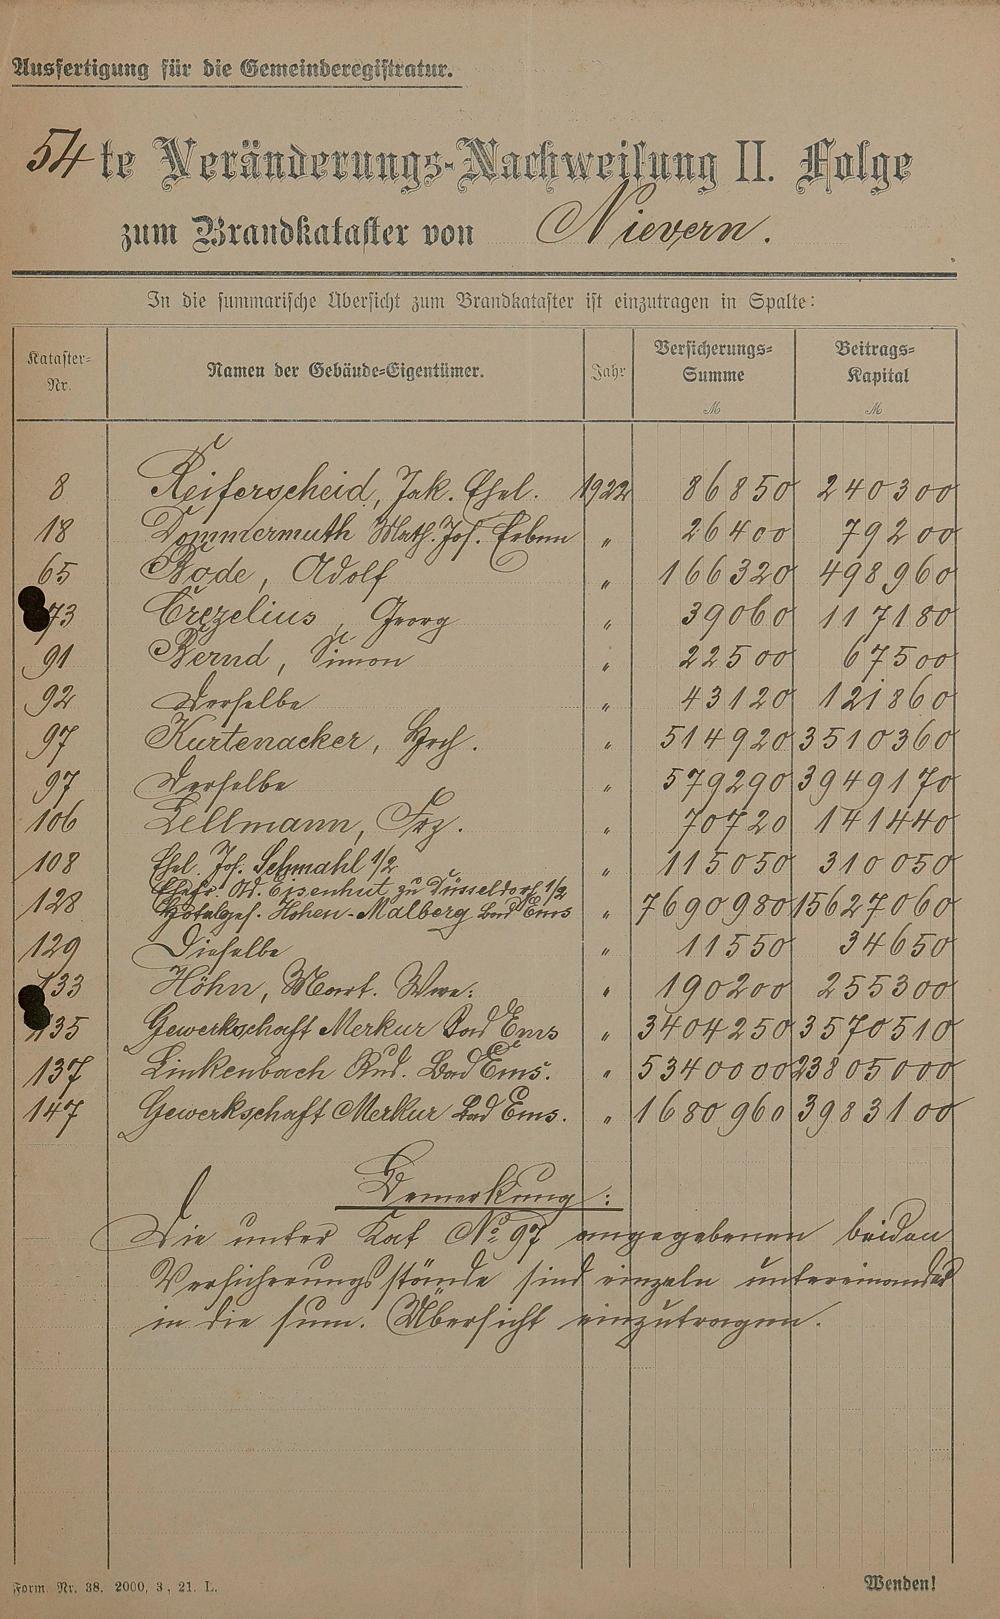 Ausfertigung für die Gemeinderegistratur.
54te Veränderungs-Nachweisung II. Folge
zum Brandkataster von Nievern.
In die summarische Übersicht zum Brandkataster ist einzutragen in Spalte:
Kataster-Nr. Namen der Gebäude-Eigentümer. Jahr Versicherungs-Summe M Beitrags-Kapital M
8 Reiferscheid, Jak. Ehel. 1922 86850 240300
18 Dommermuth Math. Jos. Erben " 26400 79200
65 Bode, Adolf " 166320 498960
73 Crezelius, Georg " 39060 117180
91 Bernd, Simon " 22500 67500
92 Derselbe " 43120 121860
97 Kurtenacker, Hrch. " 514920 3510360
97 Derselbe " 579290 3949170
106 Lellmann, Frz. " 70720 141440
108 Ehel. Jos. Schmahl 1/2 " 115050 310050
Ehefr. Ad. Eisenhut zu Düsseldorf 1/2
128 Hotelges. Hohen-Malberg Bad Ems " 7690980 15627060
129 Dieselbe " 11550 34650
133 Höhn, Mart. Wwe: " 190200 255300
135 Gewerkschaft Merkur Bad Ems " 3404250 3570510
137 Linkenbach Rud. Bad Ems. " 5340000 23805000
147 Gewerkschaft Merkur Bad Ems. " 1680960 3983100
Bemerkung:
Die unter Kat No 97 angegebenen beiden
Versicherungsstände sind einzeln untereinander
in die sum. Übersicht einzutragen.
Form. Nr. 38. 2000, 3, 21. L.
Wenden!